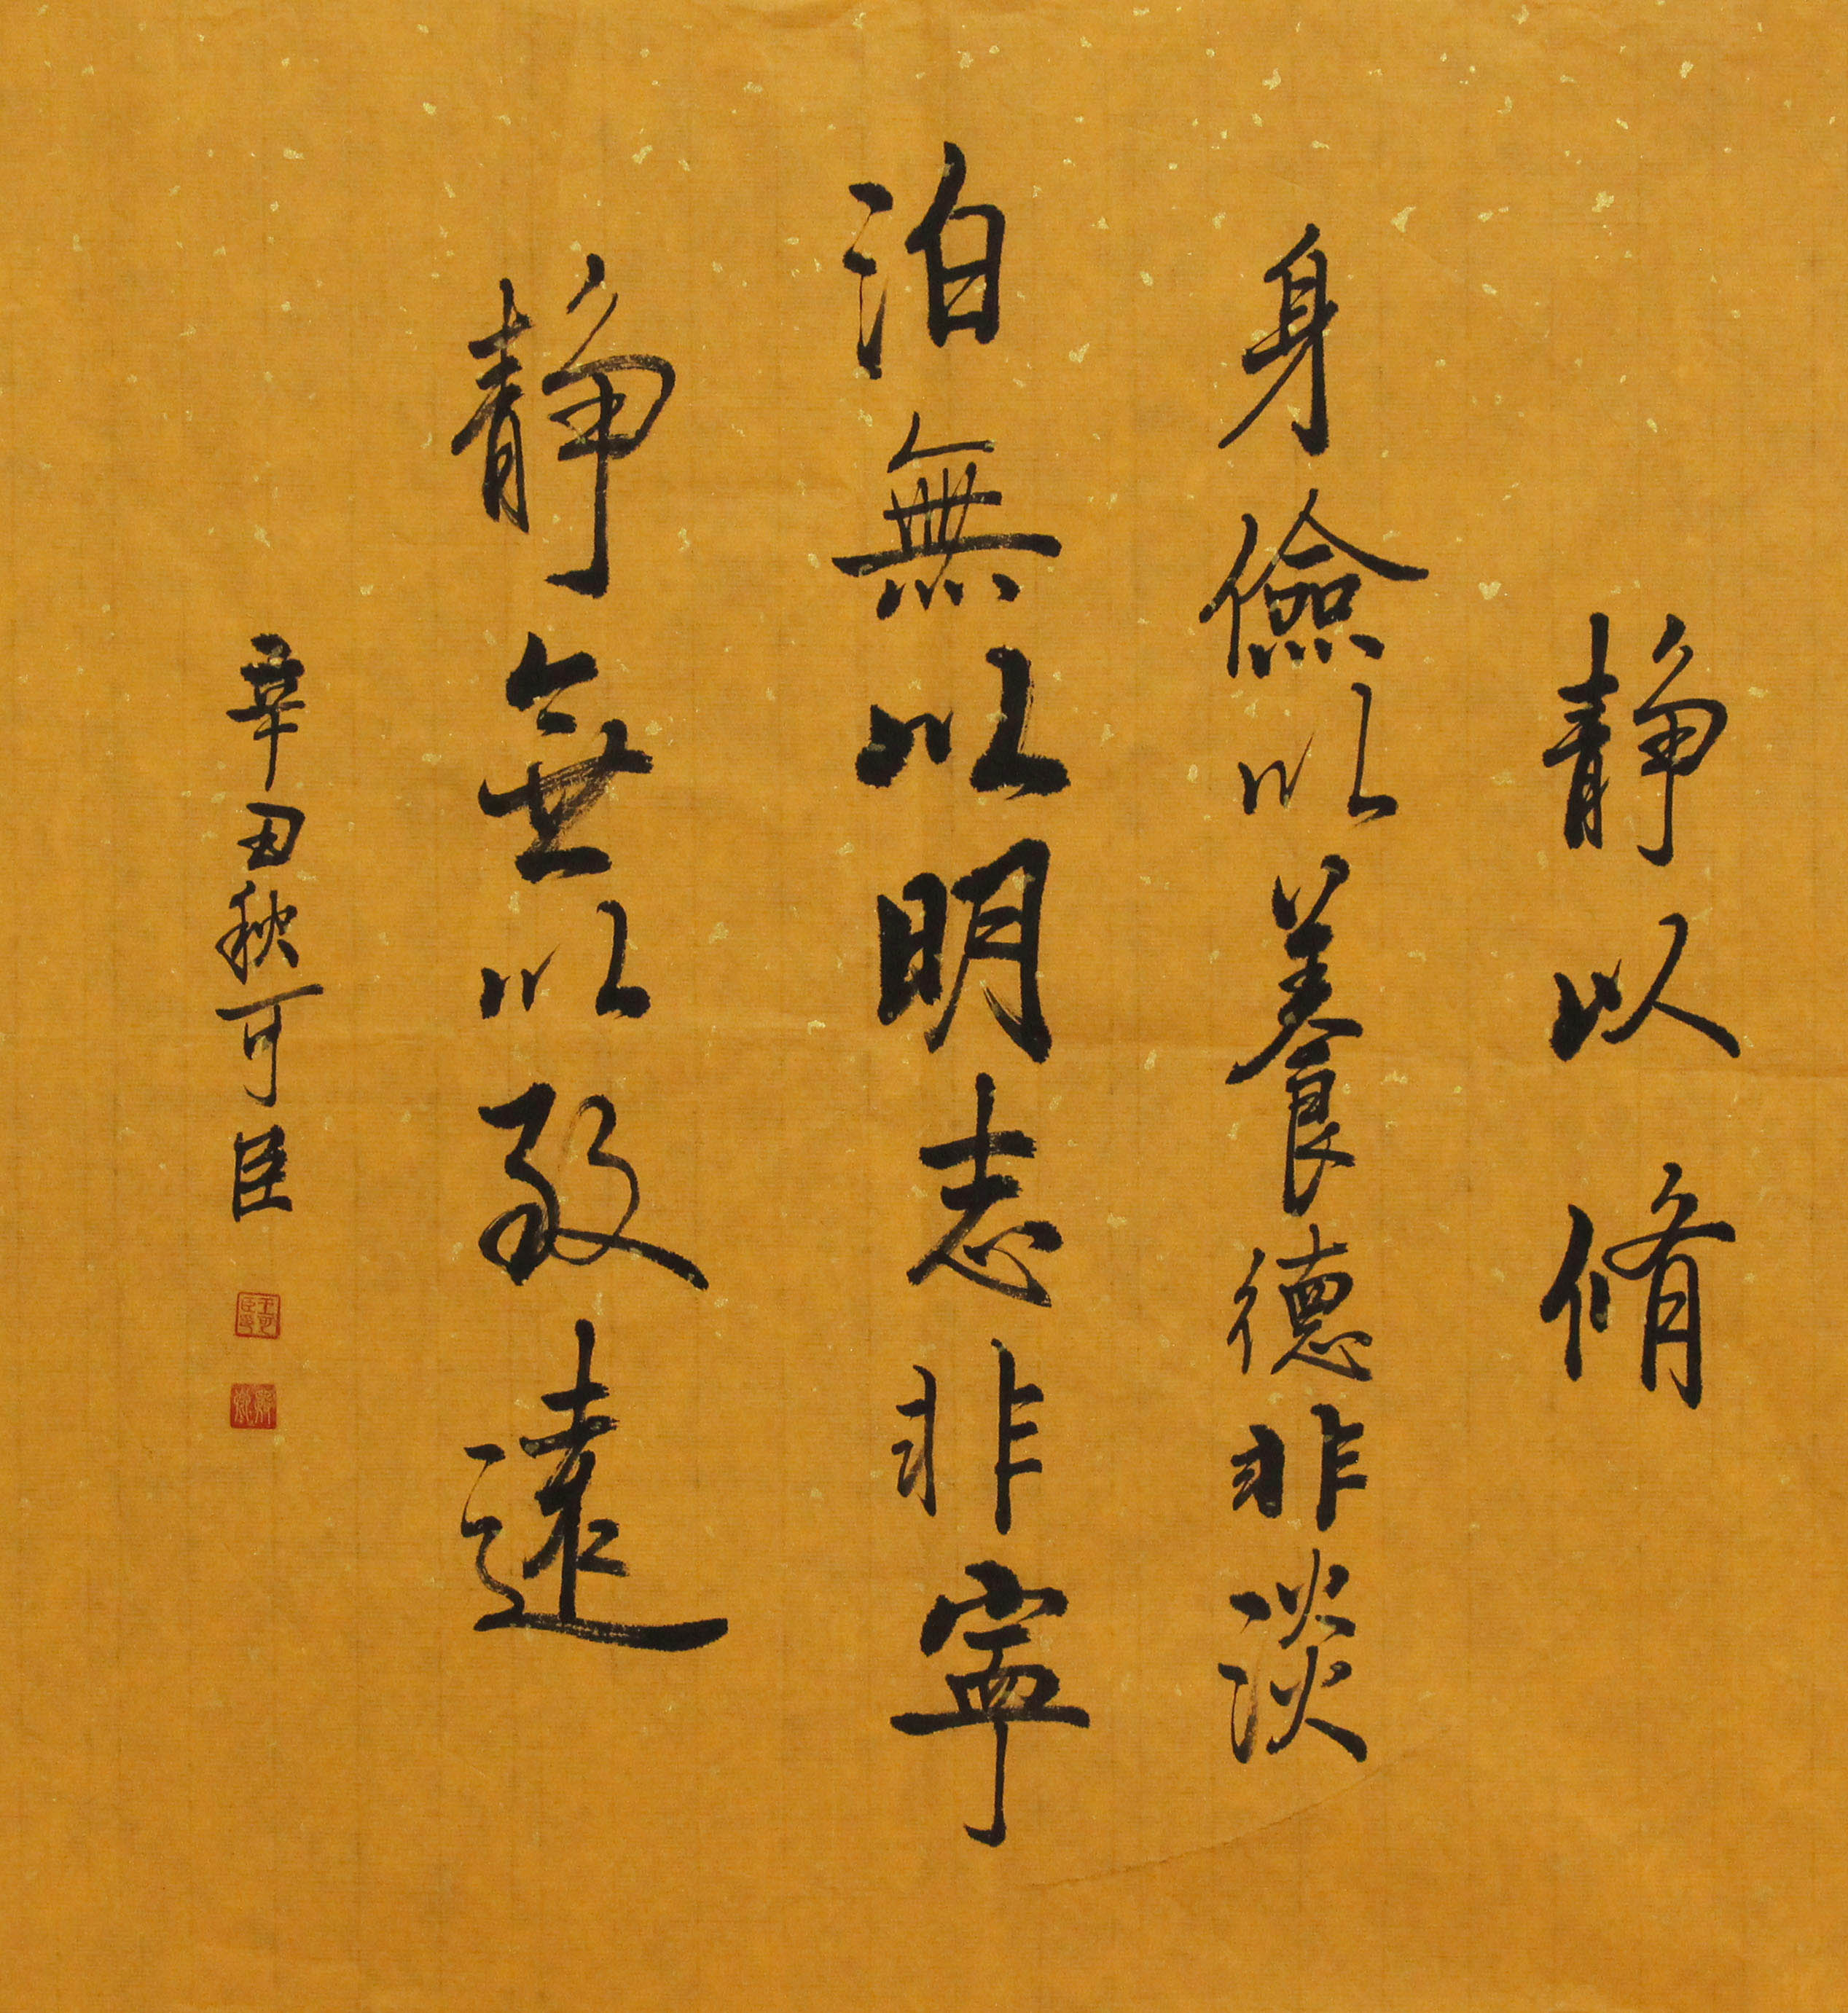 静以脩
身儉以養德非淡
泊無以明志非寧
静無以致遠
辛丑秋可臣